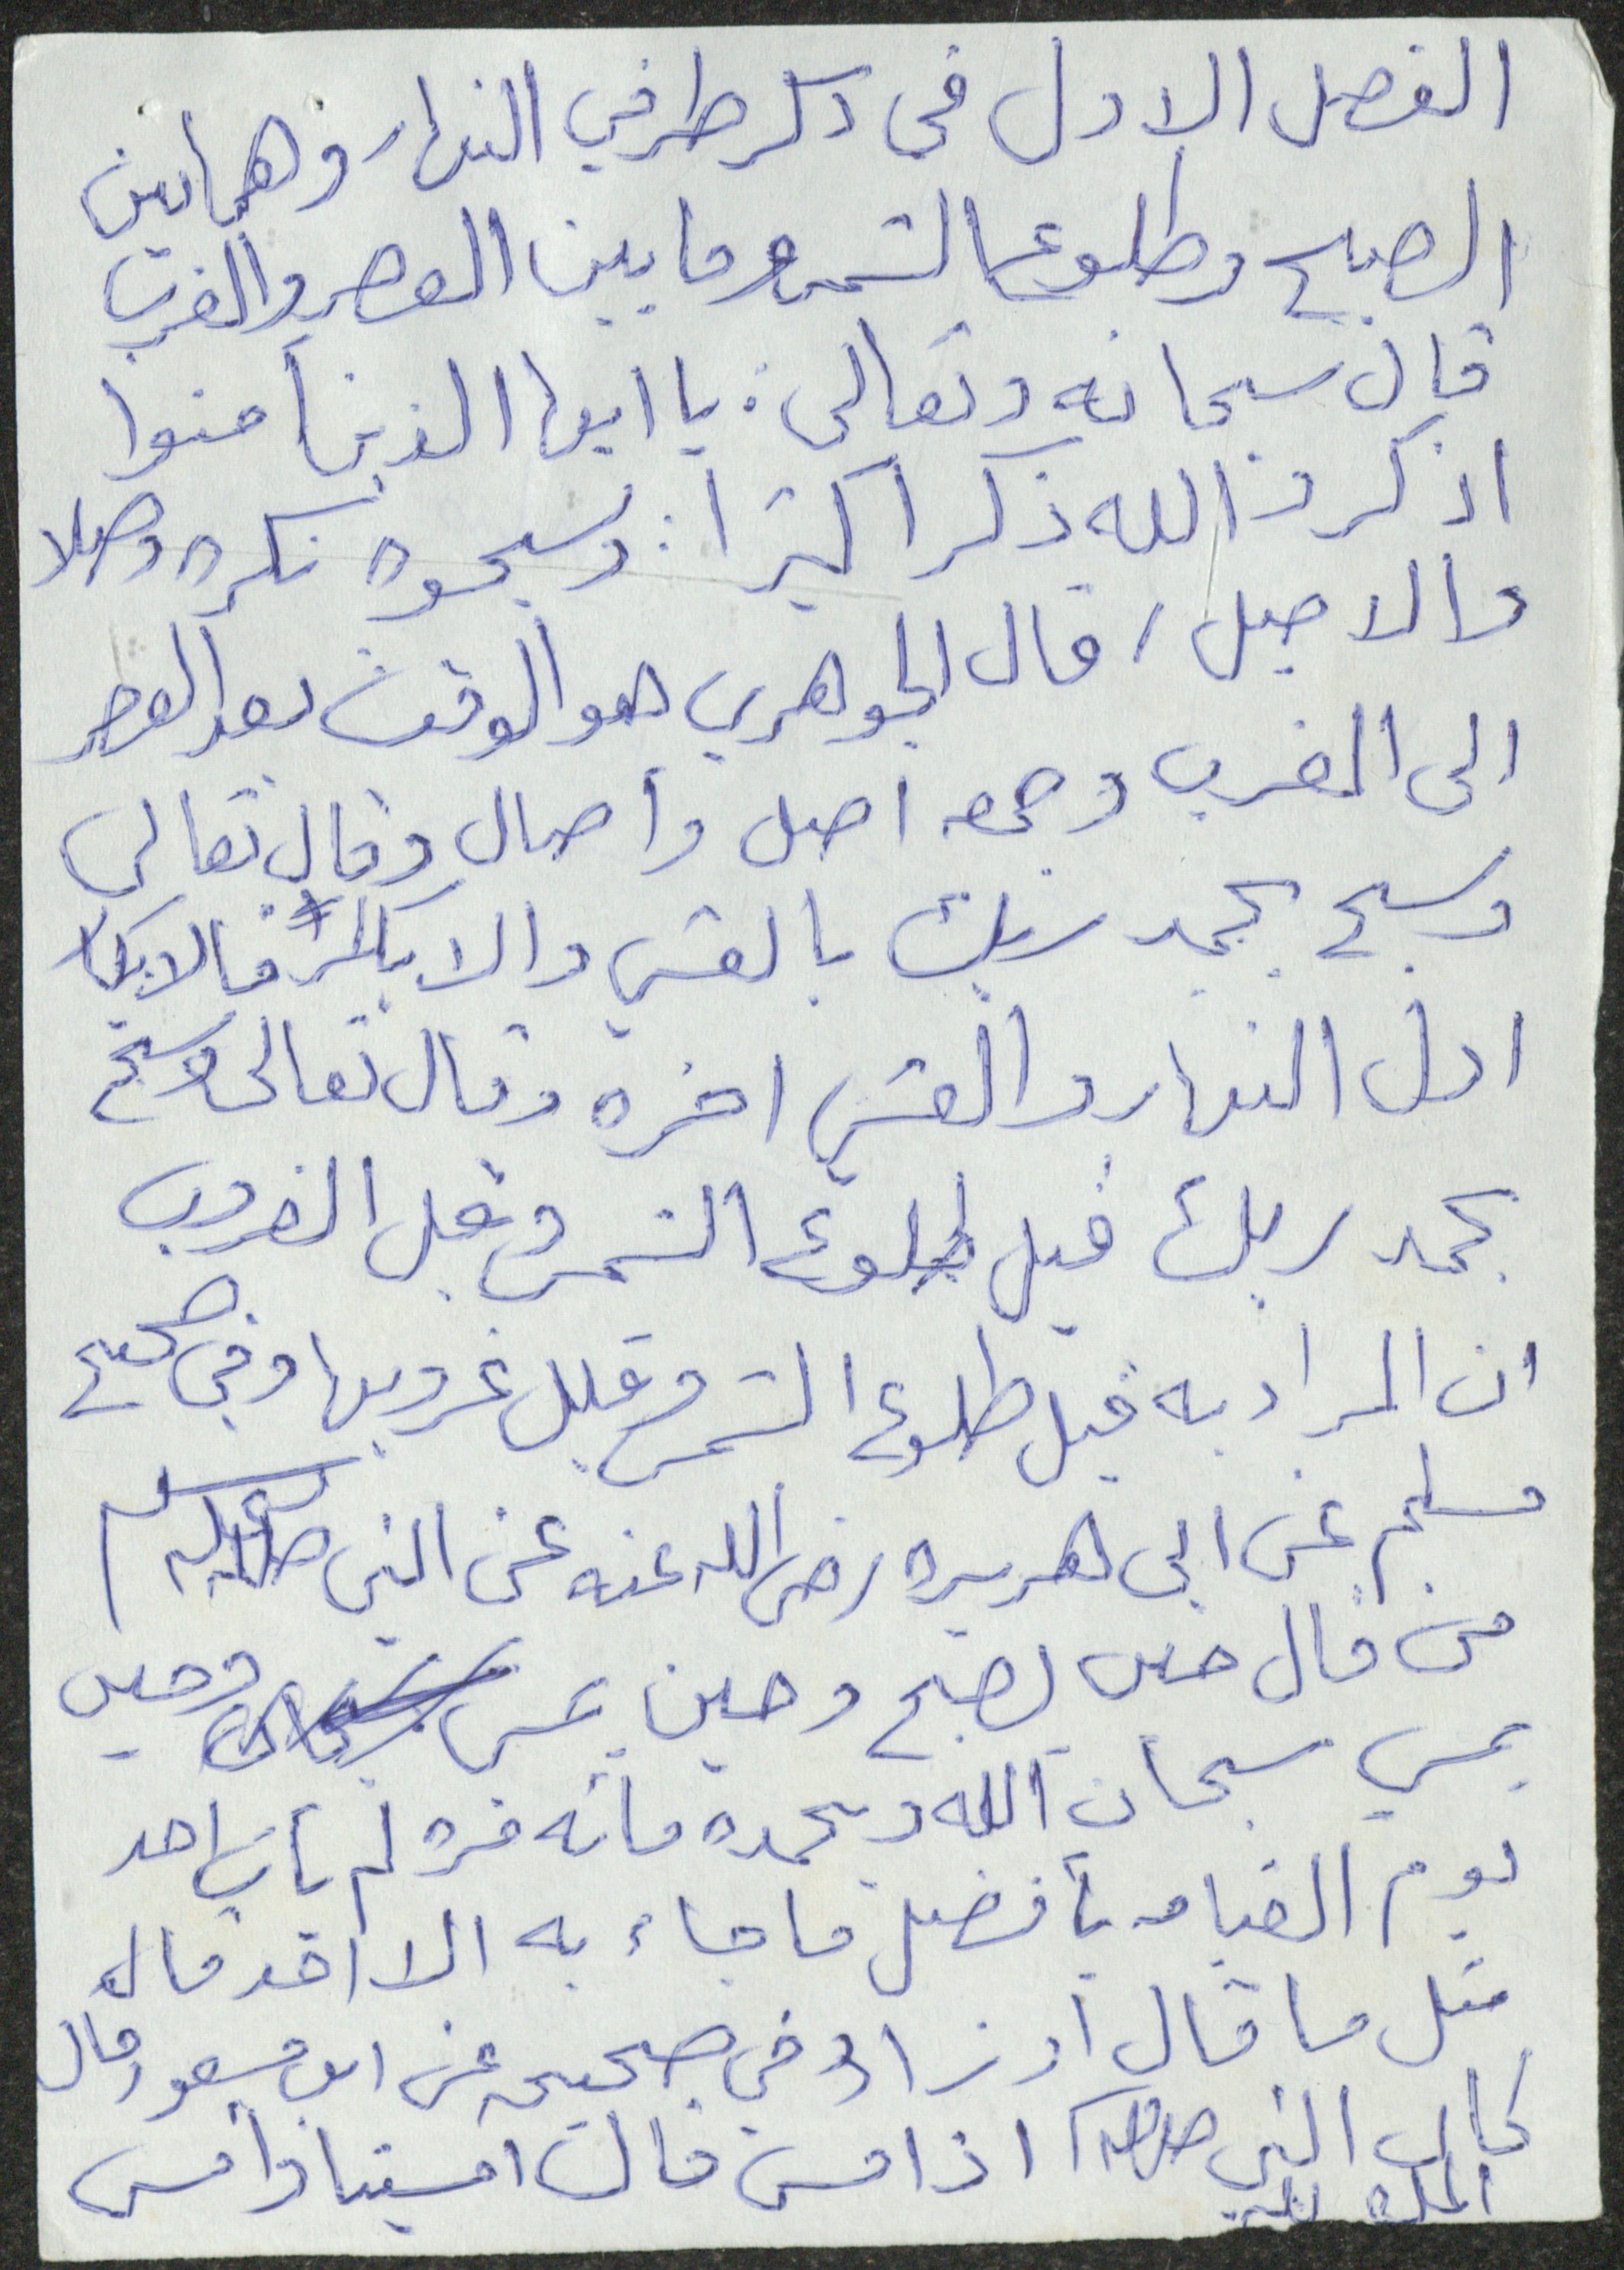 الفصل الاول في ذكر طرفي النهار وهما بين
الصبح وطلوع الشمس وما بين العصر والمغرب
قال سبحانه وتعالى : يا ايها الذين أمنوا
اذكرو الله ذكرا كثيرا : وسبحوه بكره وصلا
والاصيل / قال الجوهري هو الوقت بعد العصر
الى المغرب وجمعه اصل وأصال وقال تعالى
وسبح بحمد ربك بالعشي والابكار فالابكار
اول النهار والعشي اخره وقال تعالى وسبح
بحمد ربك قبل طلوع الشمس وقبل الغروب
ان المراد به قبل طلوع الشمس وقبل غروبها وفي صحيح
مسلم عن ابى هريره رضى الله عنه عن النبي صلى الله عليه وسلم
من قال حين يصبح وحين يمسى وحين
يمسي سبحان الله وبحمده مائه مره لم يأت احد
يوم القيامه بأفضل ما جاء به الا احد قال
مثل ما قال او زاد وفي صحيحه عن ابن مسعود قال
كان النبي اذا امسى قال امسينا وأمسى
الملك لله